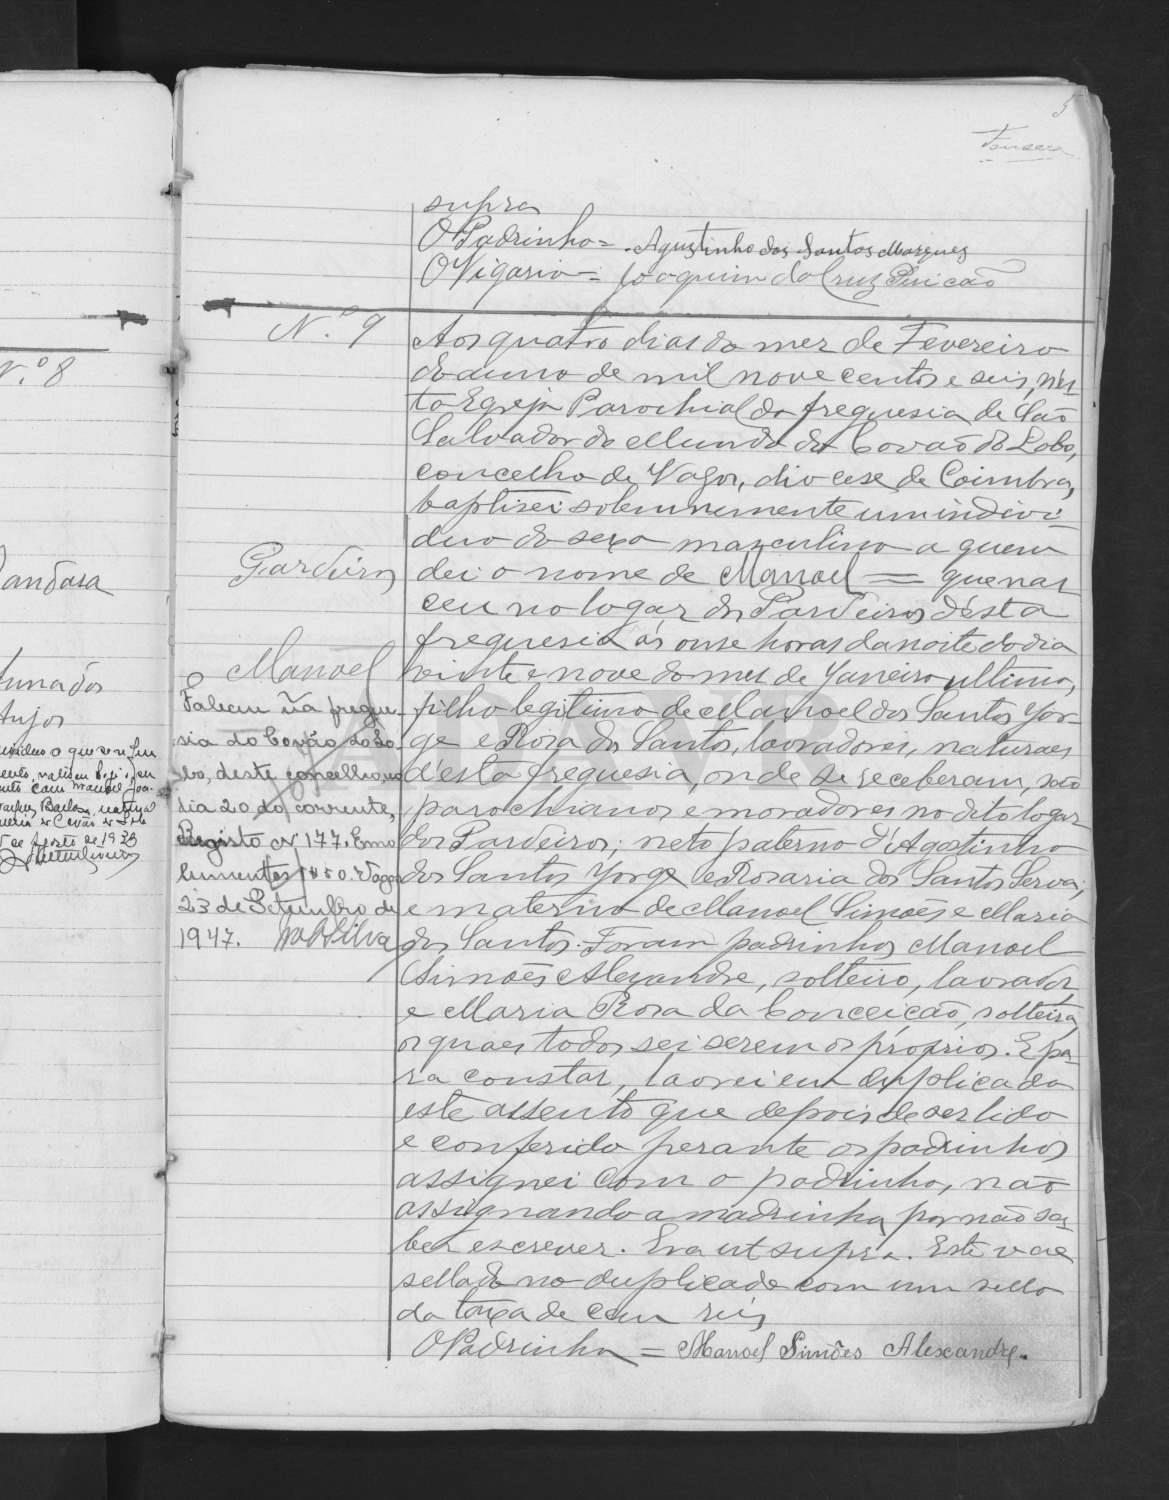 5
Fonseca
supra
O Padrinho = Agustinho dos Santos Marques
O Vigario = Joaquim da Cruz
N.º 9
Aos quatro dias do mez de Fevereiro
do anno de mil nove centos e seis, n'es-
ta Egreja Parochial da freguesia de São
Salvador do Mundo do Covão do Lobo,
concelho de Vagos, diocese de Coimbra,
baptisei solemnemente um indivi-
duo do sexo masculino a quem
dei o nome de Manoel = que nas
ceu no logar dos Pardeiros d'esta
freguesia ás onse horas da noite do dia
vinte e nove do mes de Janeiro ultimo,
filho legitimo de Manoel dos Santos Jor-
ge e Rosa dos Santos, lavradores, naturaes
d'esta freguesia, onde se receberam, são
parochianos e moradores no dito logar
dos Pardeiros; neto paterno d'Agostinho
dos Santos Jorge e Rosaria dos Santos Serva;
e materno de Manoel Simões e Maria
dos Santos. Foram padrinhos Manoel
Simões Alexandre, solteiro, lavrador
e Maria Rosa da Conceição, solteira,
os quaes todos sei serem os proprios. E pa-
ra constar, lavrei em duplicado
este assento que depois de ser lido
e conferido perante os padrinhos
assignei com o padrinho, não
assignando a madrinha por não sa-
ber escrever. Era ut supra. Este vae
sellado no duplicado com um sello
da taxa de cem reis
O Padrinho = Manoel Simões Alexandre.
Pardeiros
Manoel
Faleceu na fregue-
sia do Covão do Lo-
bo, deste concelho, no
dia 20 do corrente,
Registo Nº 177. Emo
lumentos 1$50. Vagos
23 de Setembro de
1947.
N.º 8
ADAVR